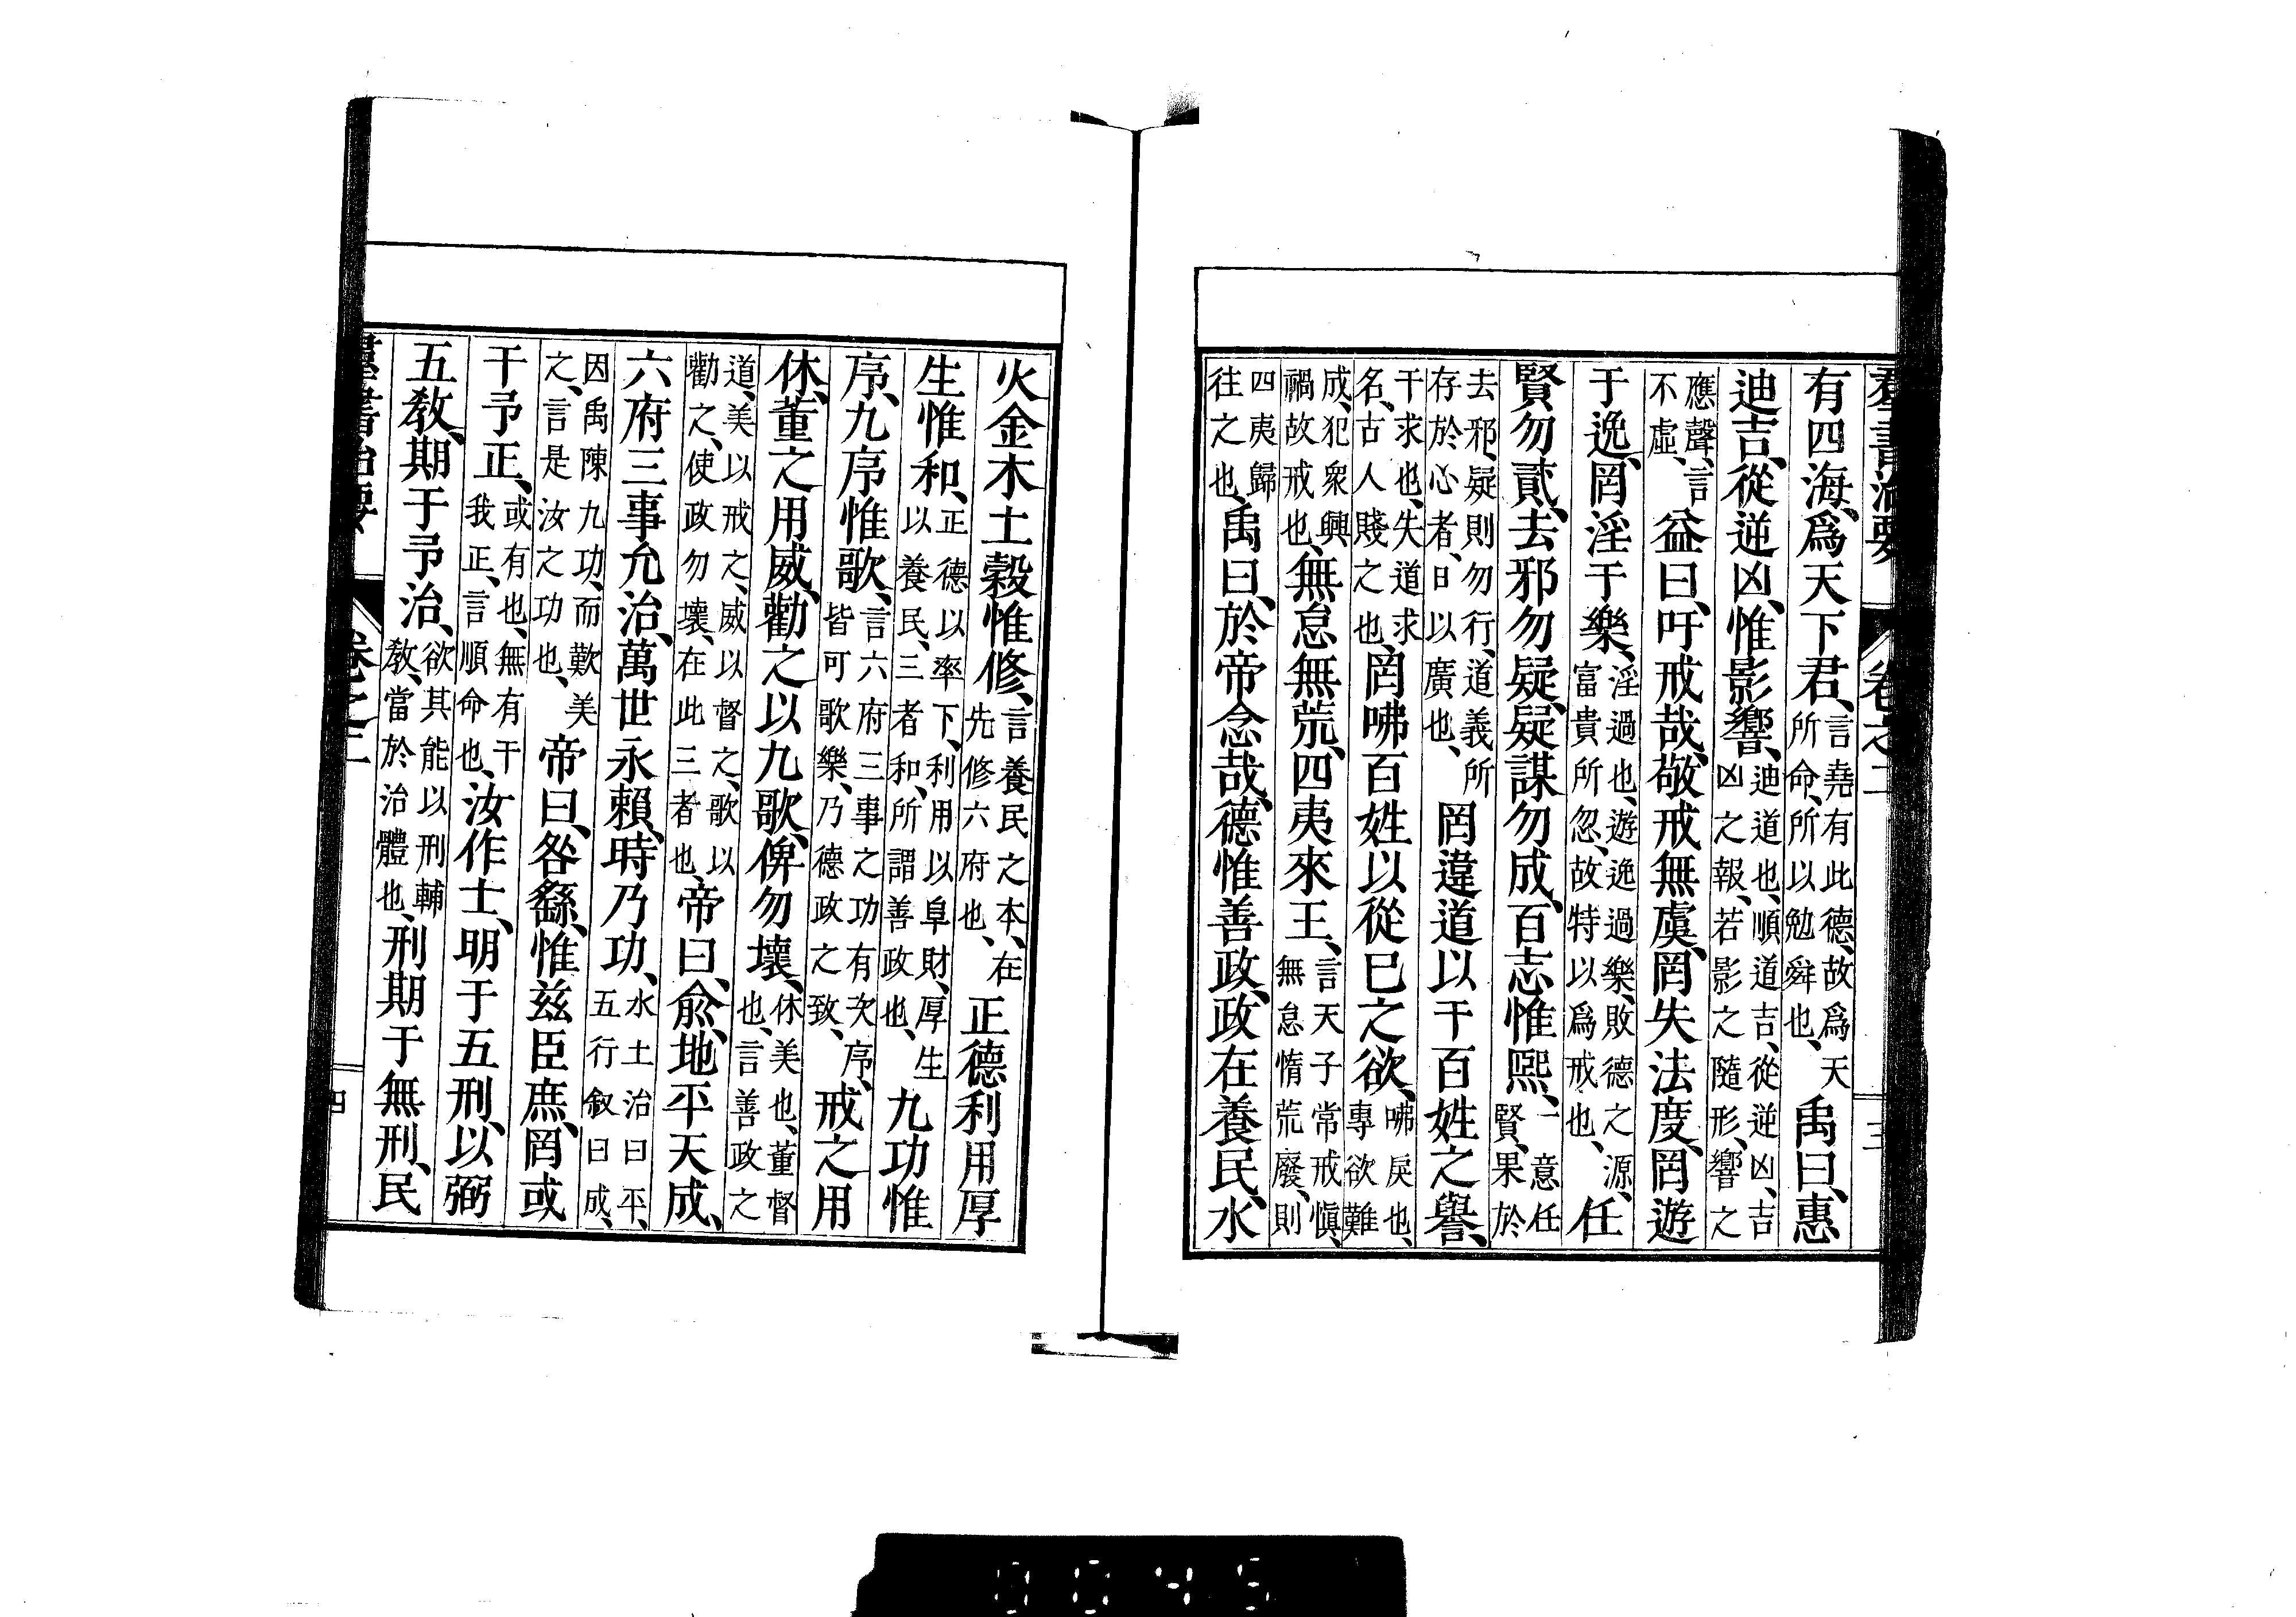 羣書治要 卷之二 三
有四海、爲天下君、言堯有此德、故爲天所命、所以勉舜也、禹曰、惠
迪吉、從逆凶、惟影響、迪道也、順道吉、從逆凶、吉凶之報、若影之隨形、響之
應聲、言不虛、益曰、吁戒哉、敬戒無虞、罔失法度、罔遊
于逸、罔淫于樂、淫過也、遊逸過樂、敗德之源、富貴所忽、故特以爲戒也、任
賢勿貳、去邪勿疑、疑謀勿成、百志惟熙、一意任賢、果於
去邪、疑則勿行、道義所存於心者、日以廣也、罔違道以干百姓之譽、
干求也、失道求名、古人賤之也、罔咈百姓以從已之欲、咈戾也、專欲難
成、犯衆興禍故戒也、無怠無荒、四夷來王、言天子常戒愼、無怠惰荒廢、則
四夷歸往之也、禹曰、於帝念哉、德惟善政、政在養民、水
火金木土穀惟修、言養民之本、在先修六府也、正德利用厚
生惟和、正德以率下、利用以阜財、厚生以養民、三者和、所謂善政也、九功惟
序、九序惟歌、言六府三事之功有次序、皆可歌樂、乃德政之致、戒之用
休、董之用威、勸之以九歌、俾勿壞、休美也、董督也、言善政之
道、美以戒之、威以督之、歌以勸之、使政勿壞、在此三者也、帝曰、兪、地平天成、
六府三事允治、萬世永賴、時乃功、水土治曰平、五行叙曰成、
因禹陳九功、而歎美之、言是汝之功也、帝曰、咎繇、惟兹臣庶、罔或
干予正、或有也、無有干我正、言順命也、汝作士、明于五刑、以弼
五教、期于予治、欲其能以刑輔教、當於治體也、刑期于無刑、民
羣書治要 卷之二 四